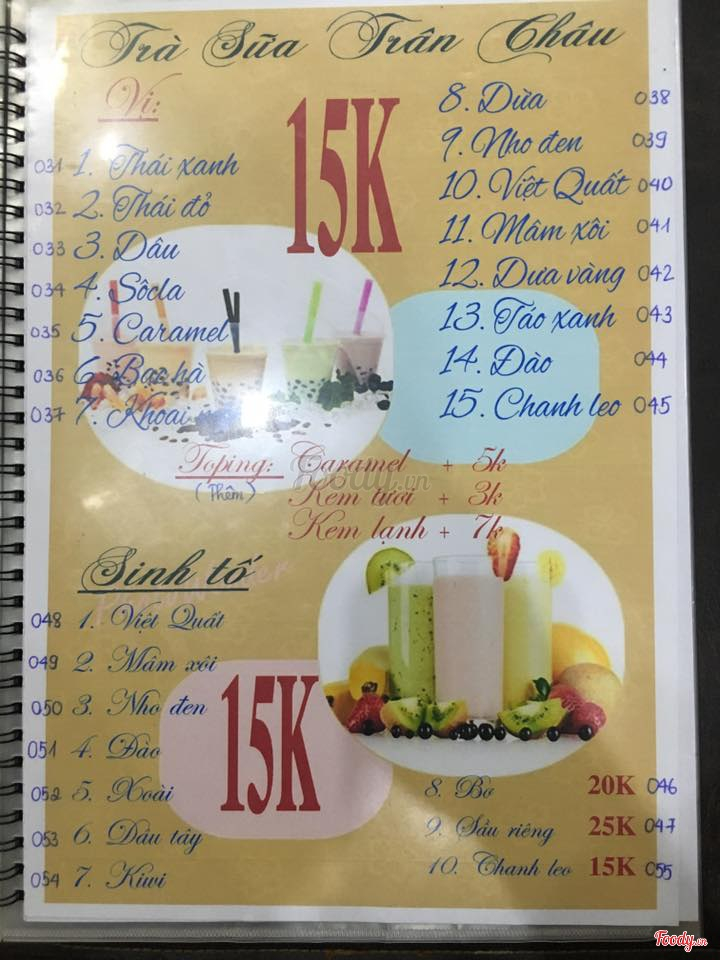 Trà Sữa Trân Châu
Vị:
15K
031 1. Thái xanh
032 2. Thái đỏ
033 3. Dâu
034 4. Sôcla
035 5. Caramel
036 6. Bạc hà
037 7. Khoai
8. Dừa 038
9. Nho đen 039
10. Việt Quất 040
11. Mâm xôi 041
12. Dưa vàng 042
13. Táo xanh 043
14. Đào 044
15. Chanh leo 045
Toping: Caramel + 5k
(Thêm) Kem tươi + 3k
Kem lạnh + 7k
Foody.vn
Sinh tố
048 1. Việt Quất
049 2. Mâm xôi
050 3. Nho đen
051 4. Đào
052 5. Xoài
053 6. Dâu tây
054 7. Kiwi
15K
8. Bơ 20K 046
9. Sầu riêng 25K 047
10. Chanh leo 15K 055
Foody.vn